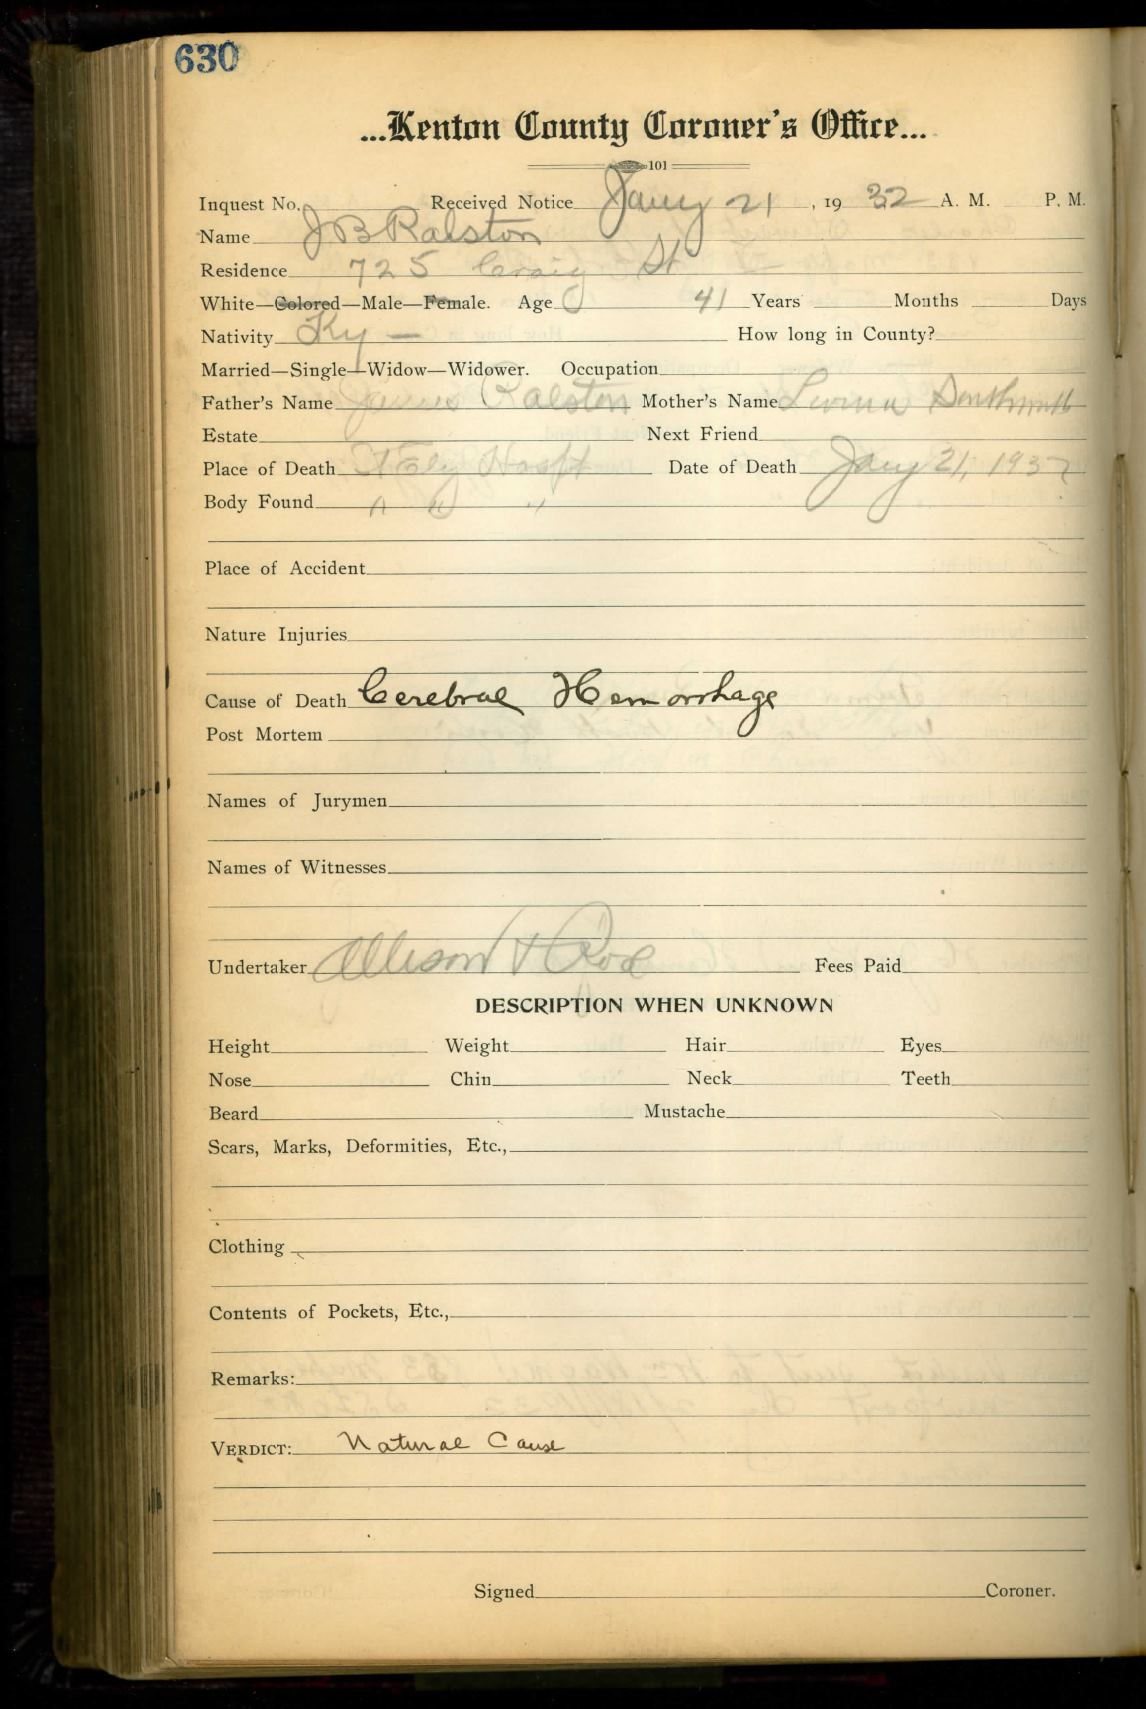 630
...Kenton County Coroner's Office...
101
Inquest No. Received Notice Jany 21, 1932 A. M. P. M.
Name J B Ralston
Residence 725 Craig St
White—Colored—Male—Female. Age 41 Years Months Days
Nativity Ky — How long in County?
Married—Single—Widow—Widower. Occupation
Father's Name James Ralston Mother's Name
Estate Next Friend
Place of Death St Eliz Hospt Date of Death Jany 21, 1932
Body Found " " "
Place of Accident
Nature Injuries
Cause of Death Cerebral Hemorrhage
Post Mortem
Names of Jurymen
Names of Witnesses
Undertaker Allison & Rose Fees Paid
DESCRIPTION WHEN UNKNOWN
Height Weight Hair Eyes
Nose Chin Neck Teeth
Beard Mustache
Scars, Marks, Deformities, Etc.,
Clothing
Contents of Pockets, Etc.,
Remarks:
VERDICT: Natural Cause
Signed Coroner.